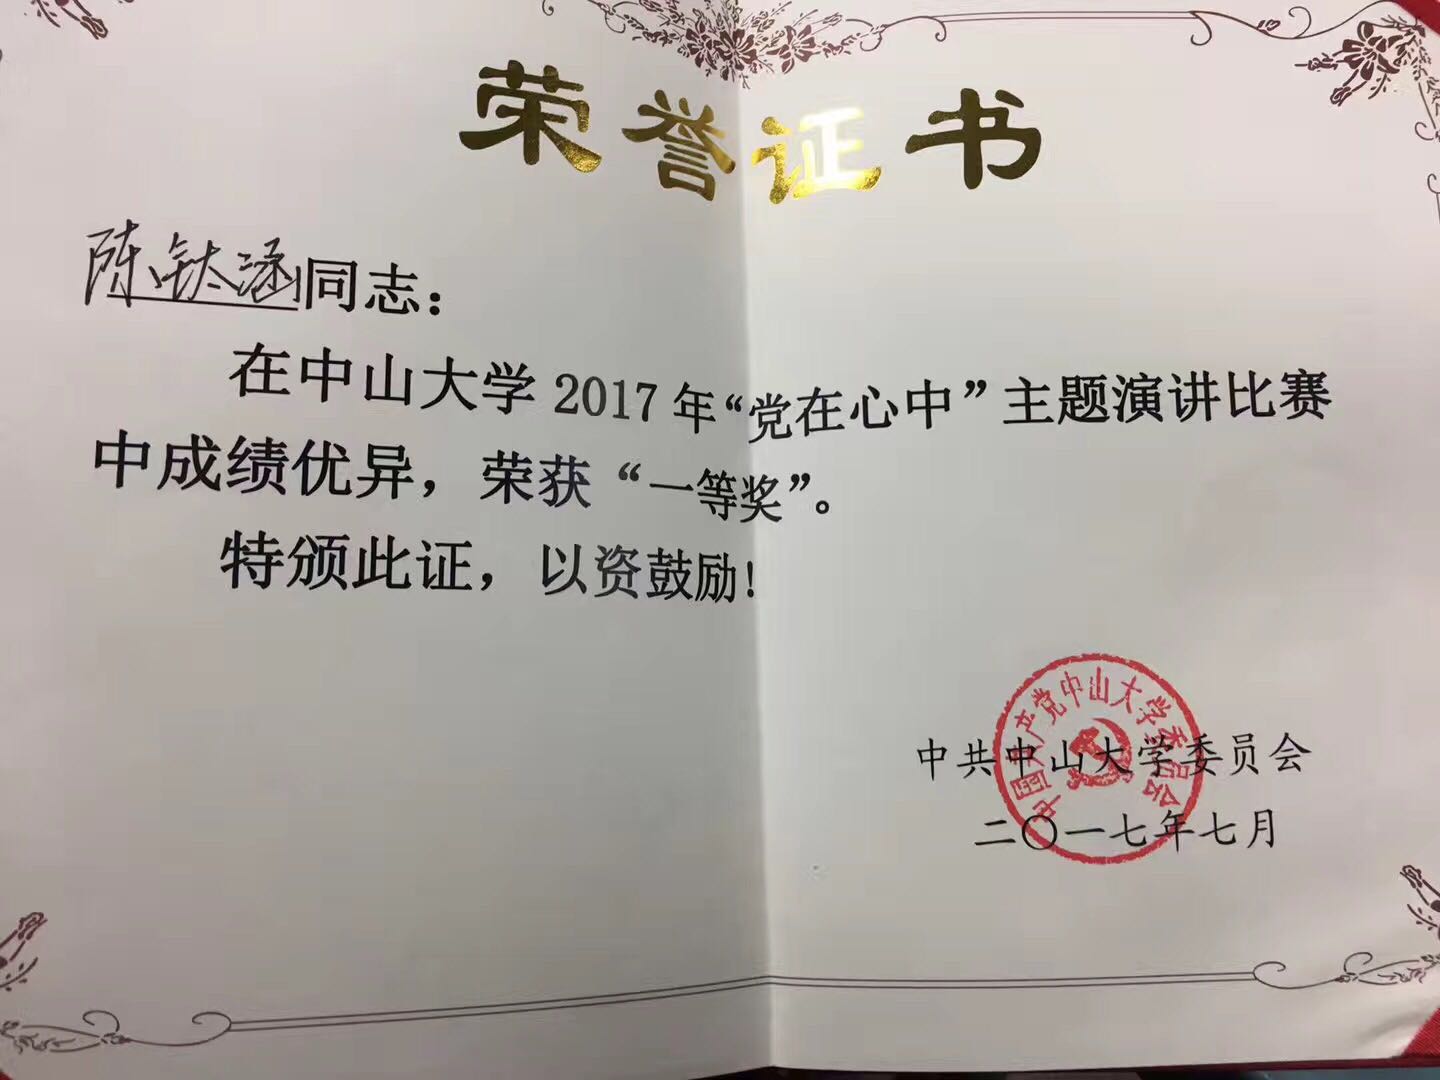 荣誉证书
陈钛涵同志：
在中山大学2017年“党在心中”主题演讲比赛
中成绩优异，荣获“一等奖”。
特颁此证，以资鼓励！
中国共产党中山大学委员会
中共中山大学委员会
二〇一七年七月